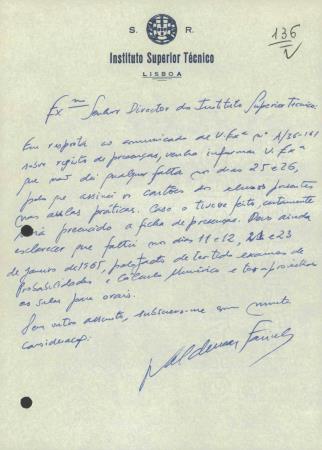 S. R.
136
Instituto Superior Técnico
LISBOA
Exmo Senhor Director do Instituto Superior Técnico:
Em resposta ao comunicado de V. Exª nº A/26-161
sobre registo de presenças, venho informar V. Exª
que não dei qualquer falta nos dias 25 e 26,
pois que assinei os cartões dos alunos presentes
nas aulas práticas. Caso o tivesse feito, certamente
teria preenchido a ficha de presenças. Devo ainda
esclarecer que faltei nos dias 11 e 12, 22 e 23
de Janeiro de 1965, pelo facto de ter tido exames de
Probabilidades e Cálculo Numérico e ter aproveitado
as aulas para orais.
Sem outro assunto, subscrevo-me com muita
consideração: